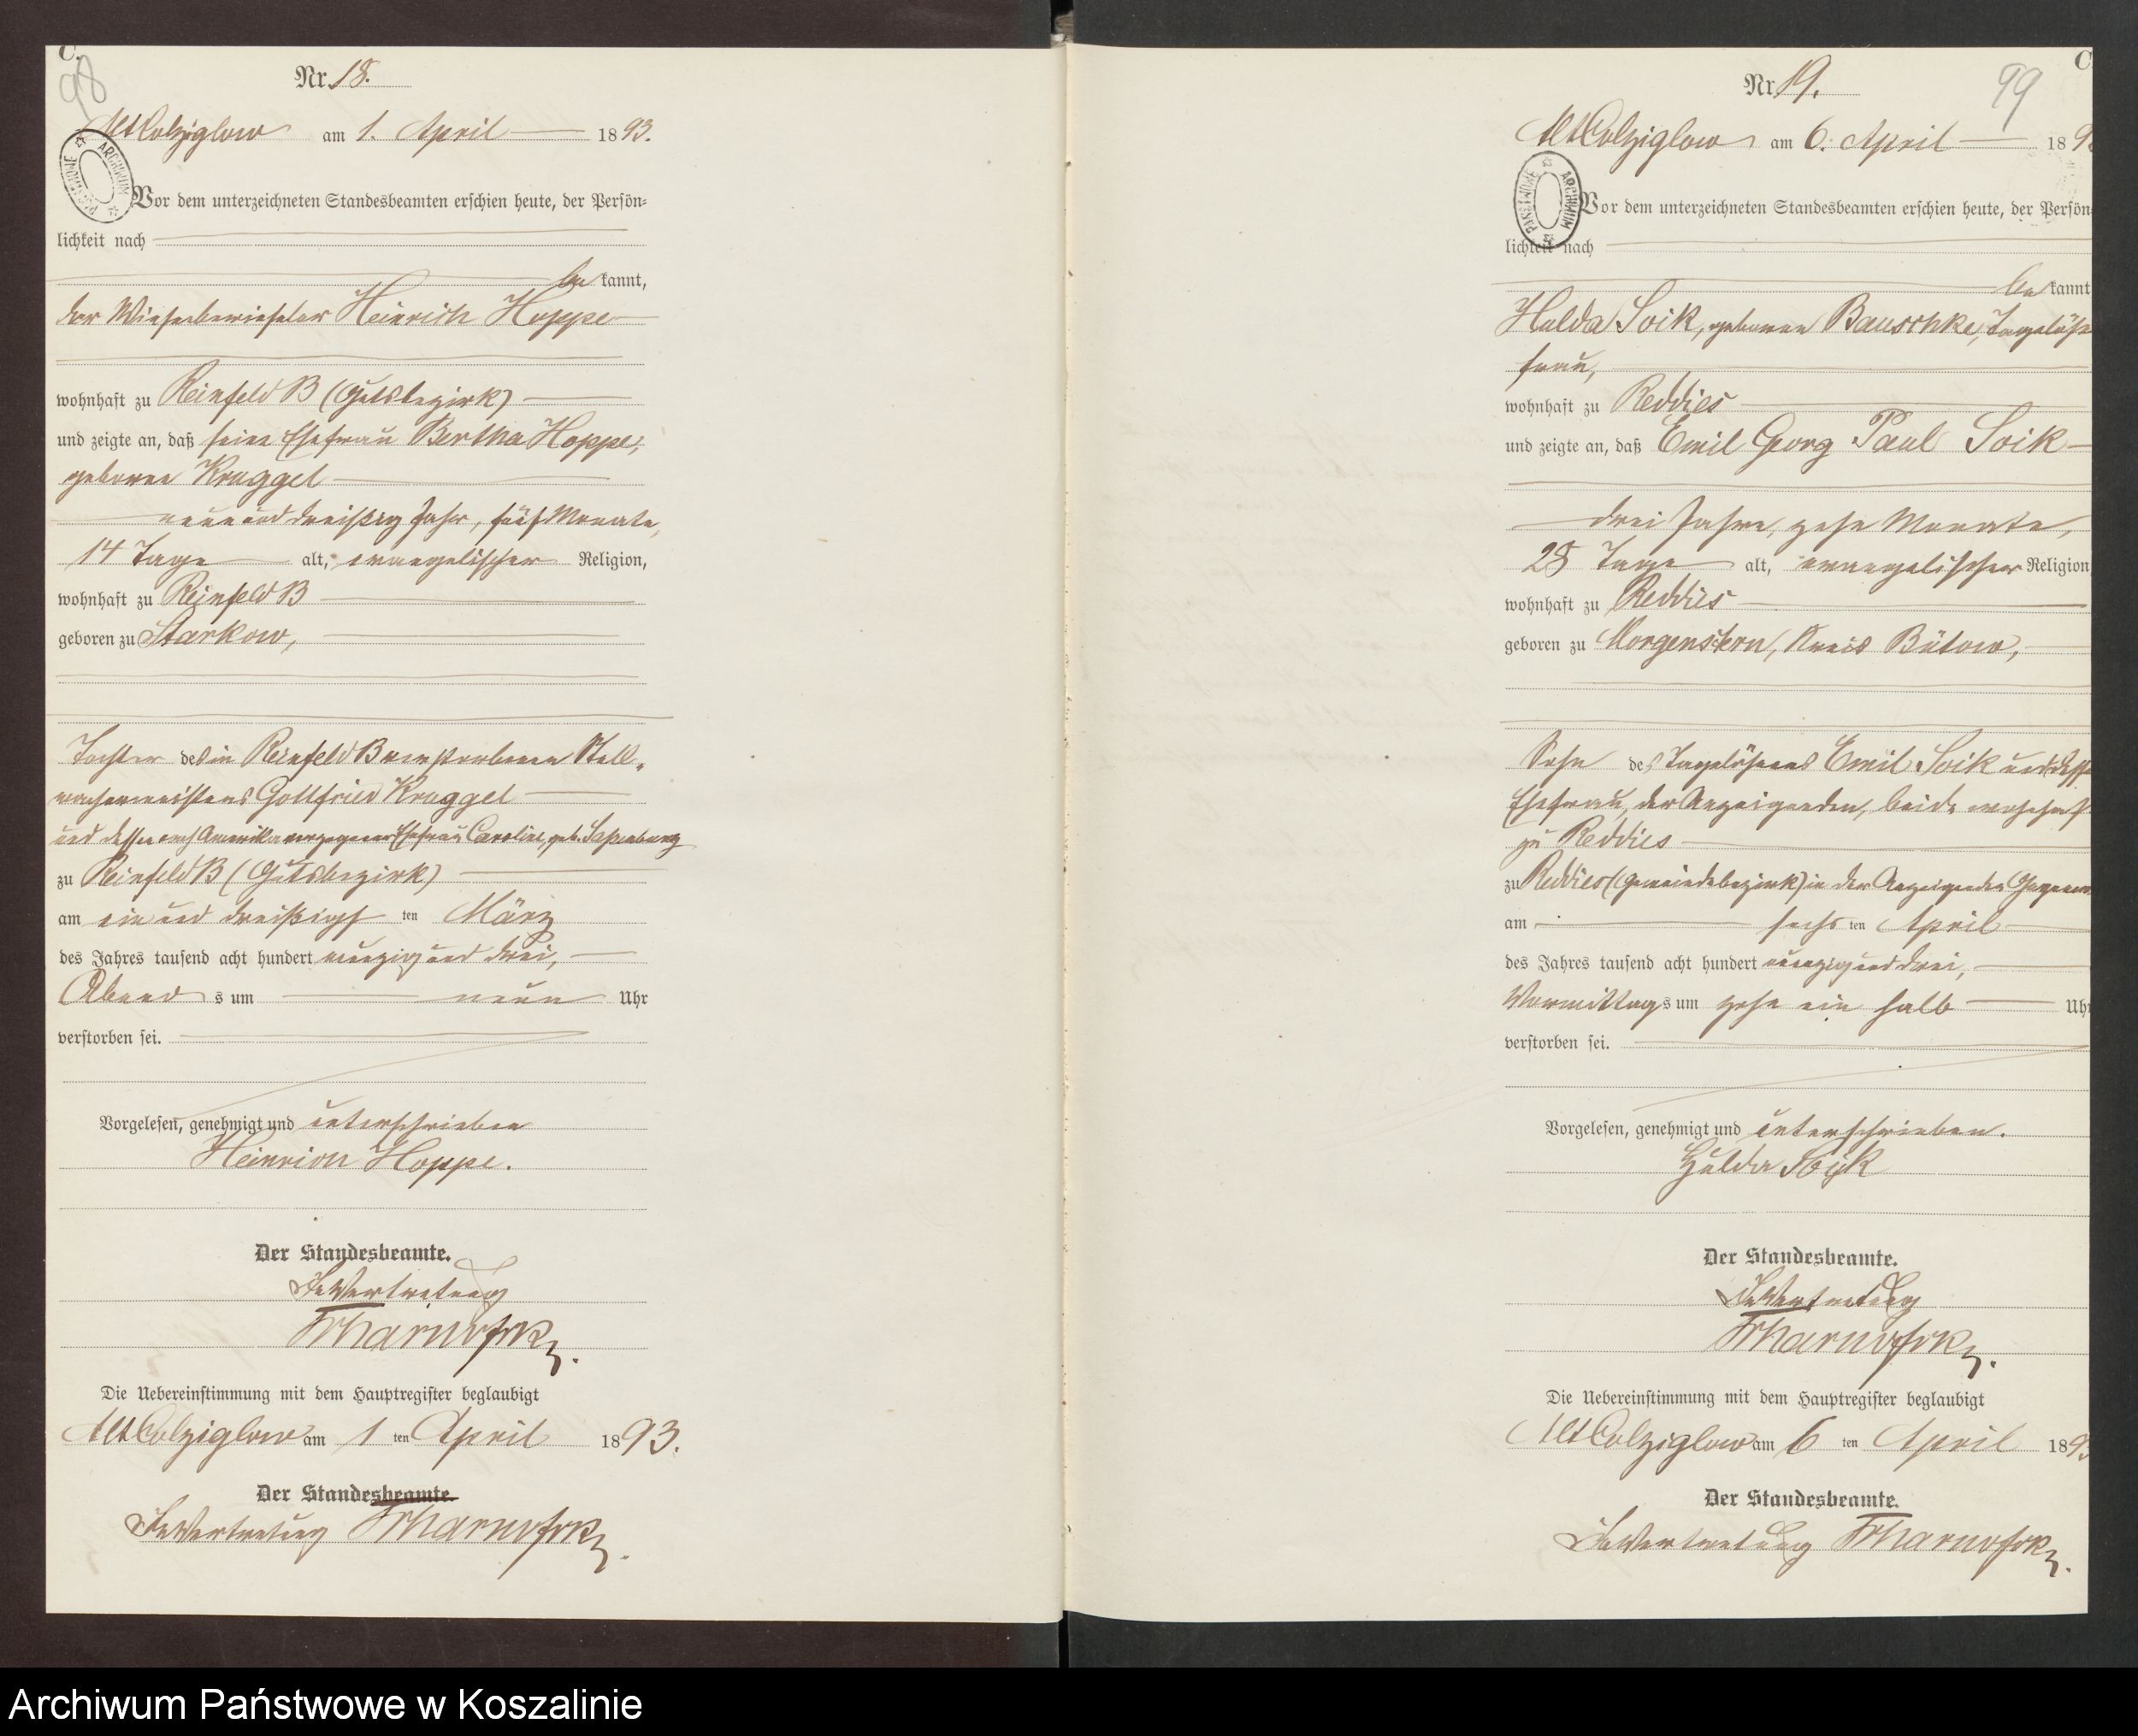 C.
98
Nr. 18.
Alt Colziglow am 1. April 1893.
Vor dem unterzeichneten Standesbeamten erschien heute, der Persön-
lichkeit nach
be kannt,
der Wiesenberieseler Heinrich Hoppe
wohnhaft zu Reinfeld B (Gutsbezirk)
und zeigte an, daß seine Ehefrau Bertha Hoppe,
geborene Kraggel
neun und dreißig Jahr, fünf Monate,
14 Tage alt, evangelischer Religion,
wohnhaft zu Reinfeld B
geboren zu Starkow,
Tochter des in Reinfeld B verstorbenen Stell-
machermeisters Gottfried Kraggel
und dessen nach Amerika verzogener Ehefrau Caroline, geb.
zu Reinfeld B (Gutsbezirk)
am ein und dreißigsten März
des Jahres tausend acht hundert neunzig und drei,
Abends um neun Uhr
verstorben sei.
Vorgelesen, genehmigt und unterschrieben
Heinrich Hoppe.
Der Standesbeamte.
In Vertretung
Die Uebereinstimmung mit dem Hauptregister beglaubigt
Alt Colziglow am 1 ten April 1893.
Der Standesbeamte.
In Vertretung
ARCHIWUM PAŃSTWOWE
C
99
Nr. 19.
Alt Colziglow am 6. April 189
Vor dem unterzeichneten Standesbeamten erschien heute, der Persön
lichkeit nach
be kannt
Hulda Soik, geborene Bauschke, Tagelöh
frau,
wohnhaft zu Reddies
und zeigte an, daß Emil Georg Paul Soik
drei Jahre, zehn Monate,
28 Tage alt, evangelischer Religion
wohnhaft zu Reddies
geboren zu Morgenstern, Kreis Bütow,
Sohn des Tagelöhners Emil Soik und dess
Ehefrau, der Anzeigenden, beide wohnhaft
zu Reddies
zu Reddies (Gemeindebezirk) in der Anzeigenden Gegenw
am sechsten April
des Jahres tausend acht hundert neunzig und drei,
Vormittags um zehn ein halb Uhr
verstorben sei.
Vorgelesen, genehmigt und unterschrieben.
Hulda Soik
Der Standesbeamte.
In Vertretung
Die Uebereinstimmung mit dem Hauptregister beglaubigt
Alt Colziglow am 6 ten April 1893
Der Standesbeamte.
In Vertretung
ARCHIWUM PAŃSTWOWE
Archiwum Państwowe w Koszalinie